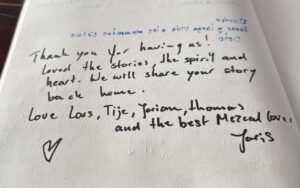 Thank you for having us!
Loved the stories, the spirit and
heart. We will share your story
back home.
Love Lars, Tije, Jorian, thomas
and the best Mezcal lover
Joris